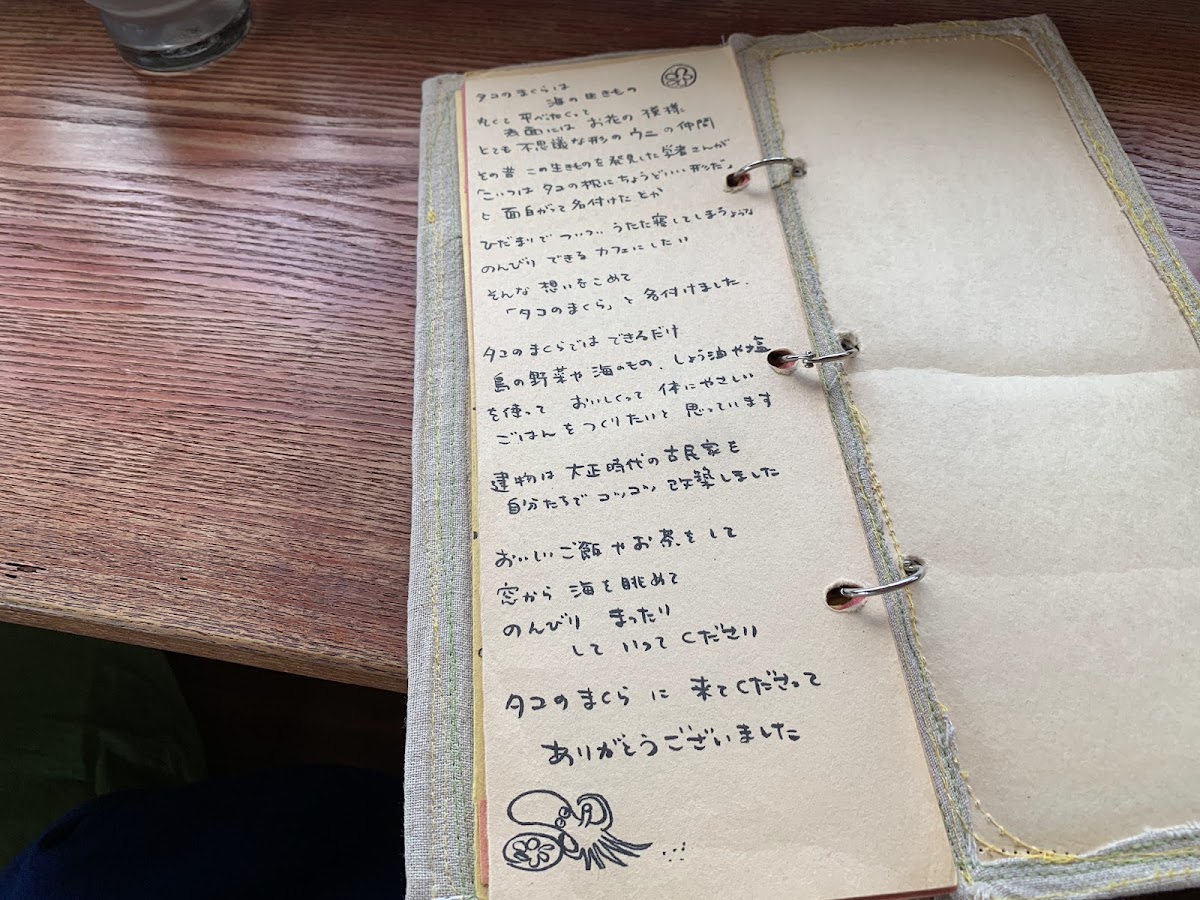 タコのまくらは
海の生きもの
丸くて 平べたくって
表面には お花の 模様
とても 不思議な形の ウニの仲間
その昔 この生きものを発見した学者さんが
「こいつは タコの枕にちょうどいい 形だ」
と 面白がって名付けたとか
ひだまりで ついつい うたた寝してしまうような
のんびり できる カフェにしたい
そんな 想いをこめて
「タコのまくら」と 名付けました.
タコのまくらでは できるだけ
島の野菜や 海のもの、しょう油や塩
を使って おいしくって 体にやさしい
ごはんを つくりたいと 思っています
建物は 大正時代の古民家を
自分たちで コツコツ 改築しました
おいしいご飯やお茶をして
窓から 海を眺めて
のんびり まったり
して いって ください
タコのまくら に 来てくださって
ありがとうございました